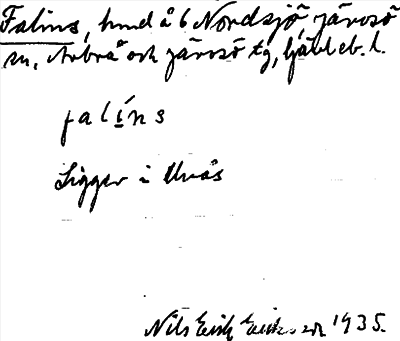 Falins, hmd å 6 Nordsjö, Järvsö
sn, Arbrå och Järvsö tg, Ljusd. l.
falins
Ligger i Uvås
Nils Erik Eriksson 1935.